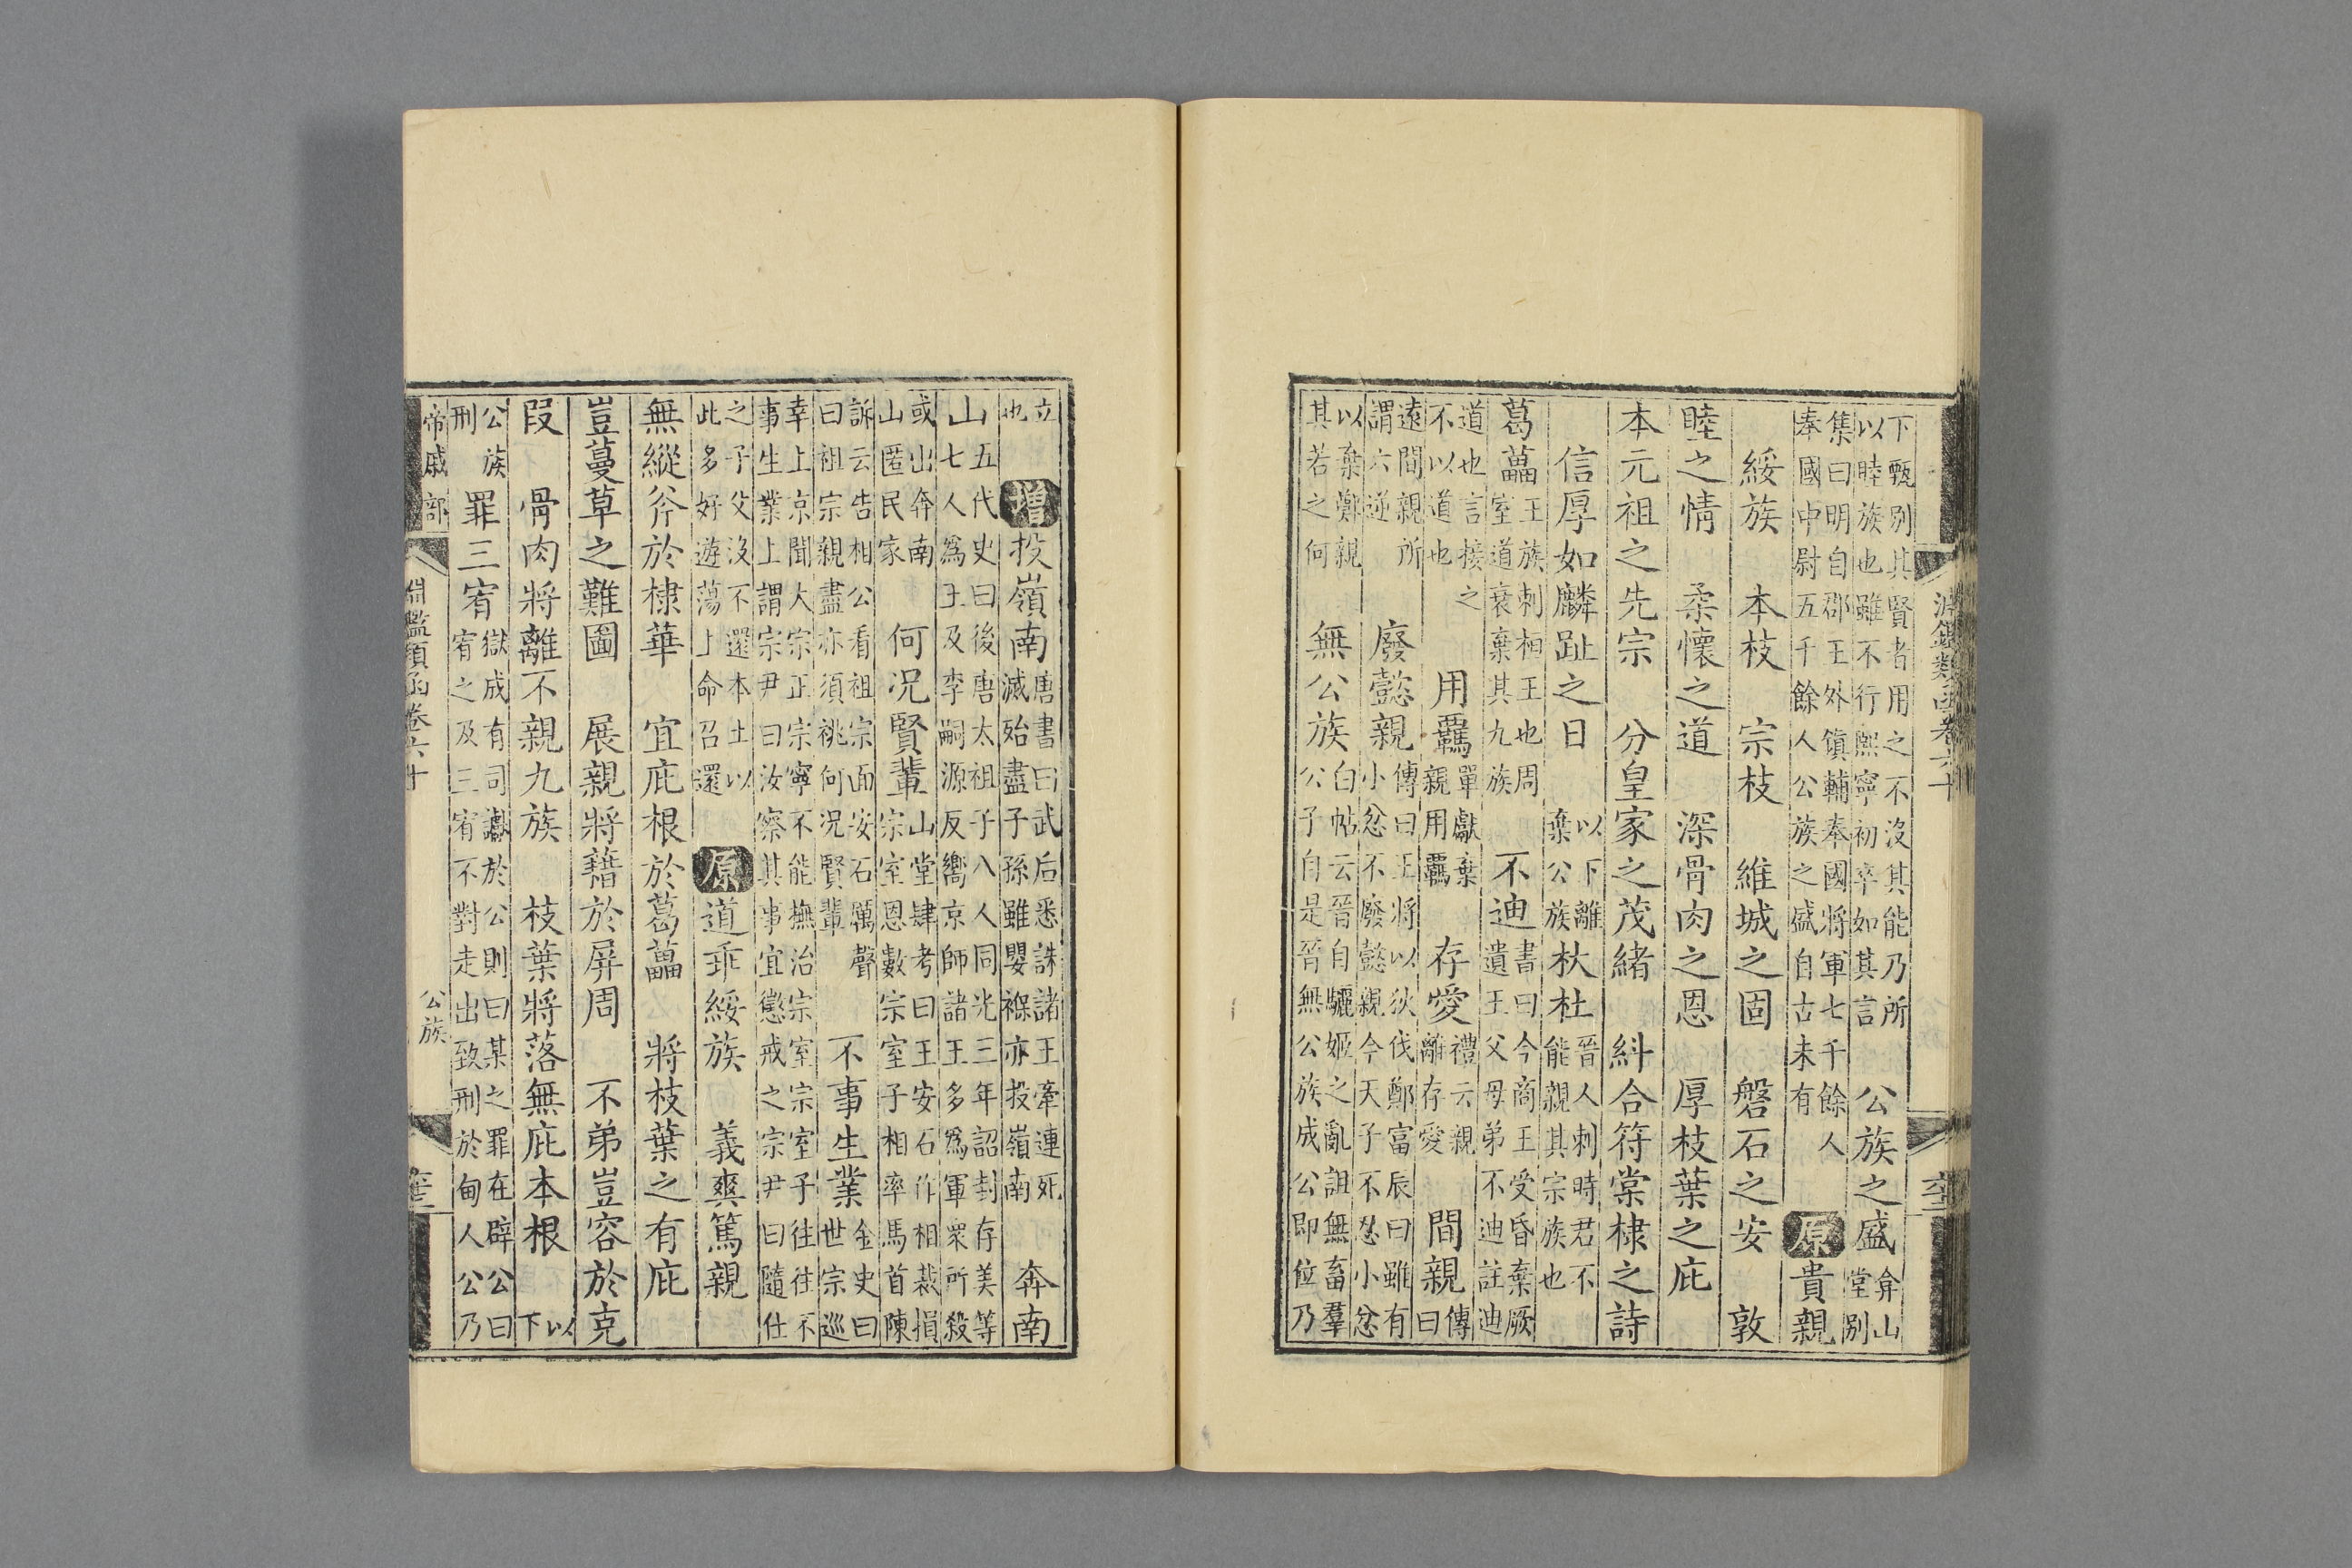 下甄別其賢者用之不沒其能乃所
以睦族也雖不行熙寧初卒如其言
公族之盛
弇山
堂別
集曰明自郡王外鎮輔奉國將軍七千餘人
奉國中尉五千餘人公族之盛自古未有
原
貴親
綏族　本枝　宗枝　維城之固　磐石之安　敦
睦之情　柔懷之道　深骨肉之恩　厚枝葉之庇
本元祖之先宗　分皇家之茂緒　糾合符棠棣之詩
信厚如麟趾之日
以下離
棄公族
杕杜
晉人刺時君不
能親其宗族也
葛藟
王族刺桓王也周
室道衰棄其九族
不迪
書曰今商王受昏棄厥
遺王父母弟不迪註迪
道也言接之
不以道也
用羈
單獻棄
親用羈
存愛
禮云親
離存愛
間親
傳
曰
遠間親所
謂六逆
廢懿親
傳曰王將以狄伐鄭富辰曰雖有
小忿不廢懿親今天子不忍小忿
以棄鄭親
其若之何
無公族
白帖云晉自驪姬之亂詛無畜羣
公子自是晉無公族成公即位乃
淵鑑類函卷六十
立
也
增
投嶺南
唐書曰武后悉誅諸王牽連死
滅殆盡子孫雖嬰褓亦投嶺南
奔南
山
五代史曰後唐太祖子八人同光三年詔封存美等
七人為王及李嗣源反嚮京師諸王多為軍眾所殺
或出奔南
山匿民家
何況賢輩
山堂肆考曰王安石作相裁損
宗室恩數宗室子相率馬首陳
訴云告相公看祖宗面安石厲聲
曰祖宗親盡亦須祧何況賢輩
不事生業
金史曰
世宗巡
幸上京聞大宗正宗寧不能撫治宗室宗室子往往不
事生業上謂宗尹曰汝察其事宜懲戒之宗尹曰隨仕
之子父沒不還本土以
此多好遊蕩上命召還
原
道乖綏族　義爽篤親
無縱斧於棣華　宜庇根於葛藟　將枝葉之有庇
豈蔓草之難圖　展親將藉於屏周　不弟豈容於克
段　骨肉將離不親九族　枝葉將落無庇本根
以
下
公族
刑
罪三宥
獄成有司讞於公則曰某之罪在辟公曰
宥之及三宥不對走出致刑於甸人公乃
帝戚部
淵鑑類函卷六十
公族